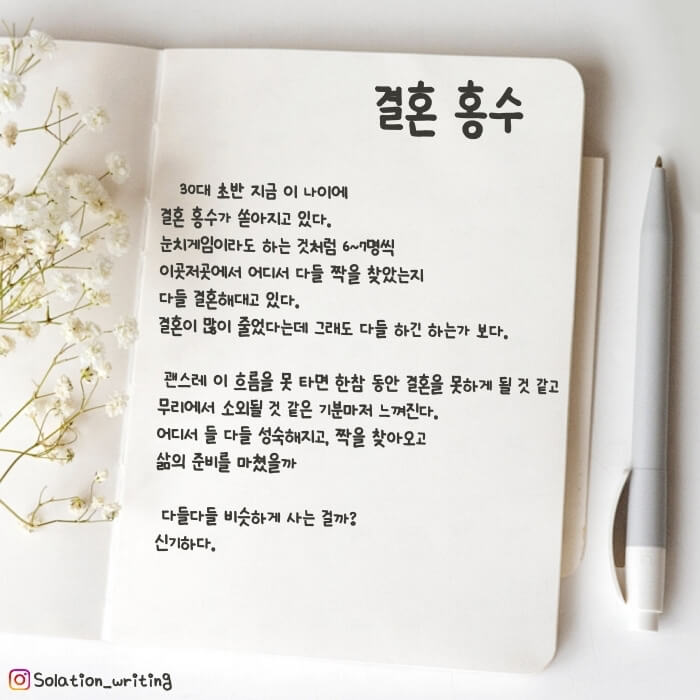 결혼 홍수
30대 초반 지금 이 나이에
결혼 홍수가 쏟아지고 있다.
눈치게임이라도 하는 것처럼 6~7명씩
이곳저곳에서 어디서 다들 짝을 찾았는지
다들 결혼해대고 있다.
결혼이 많이 줄었다는데 그래도 다들 하긴 하는가 보다.
괜스레 이 흐름을 못 타면 한참 동안 결혼을 못하게 될 것 같고
무리에서 소외될 것 같은 기분마저 느껴진다.
어디서 들 다들 성숙해지고, 짝을 찾아오고
삶의 준비를 마쳤을까
다들다들 비슷하게 사는 걸까?
신기하다.
Solation_writing